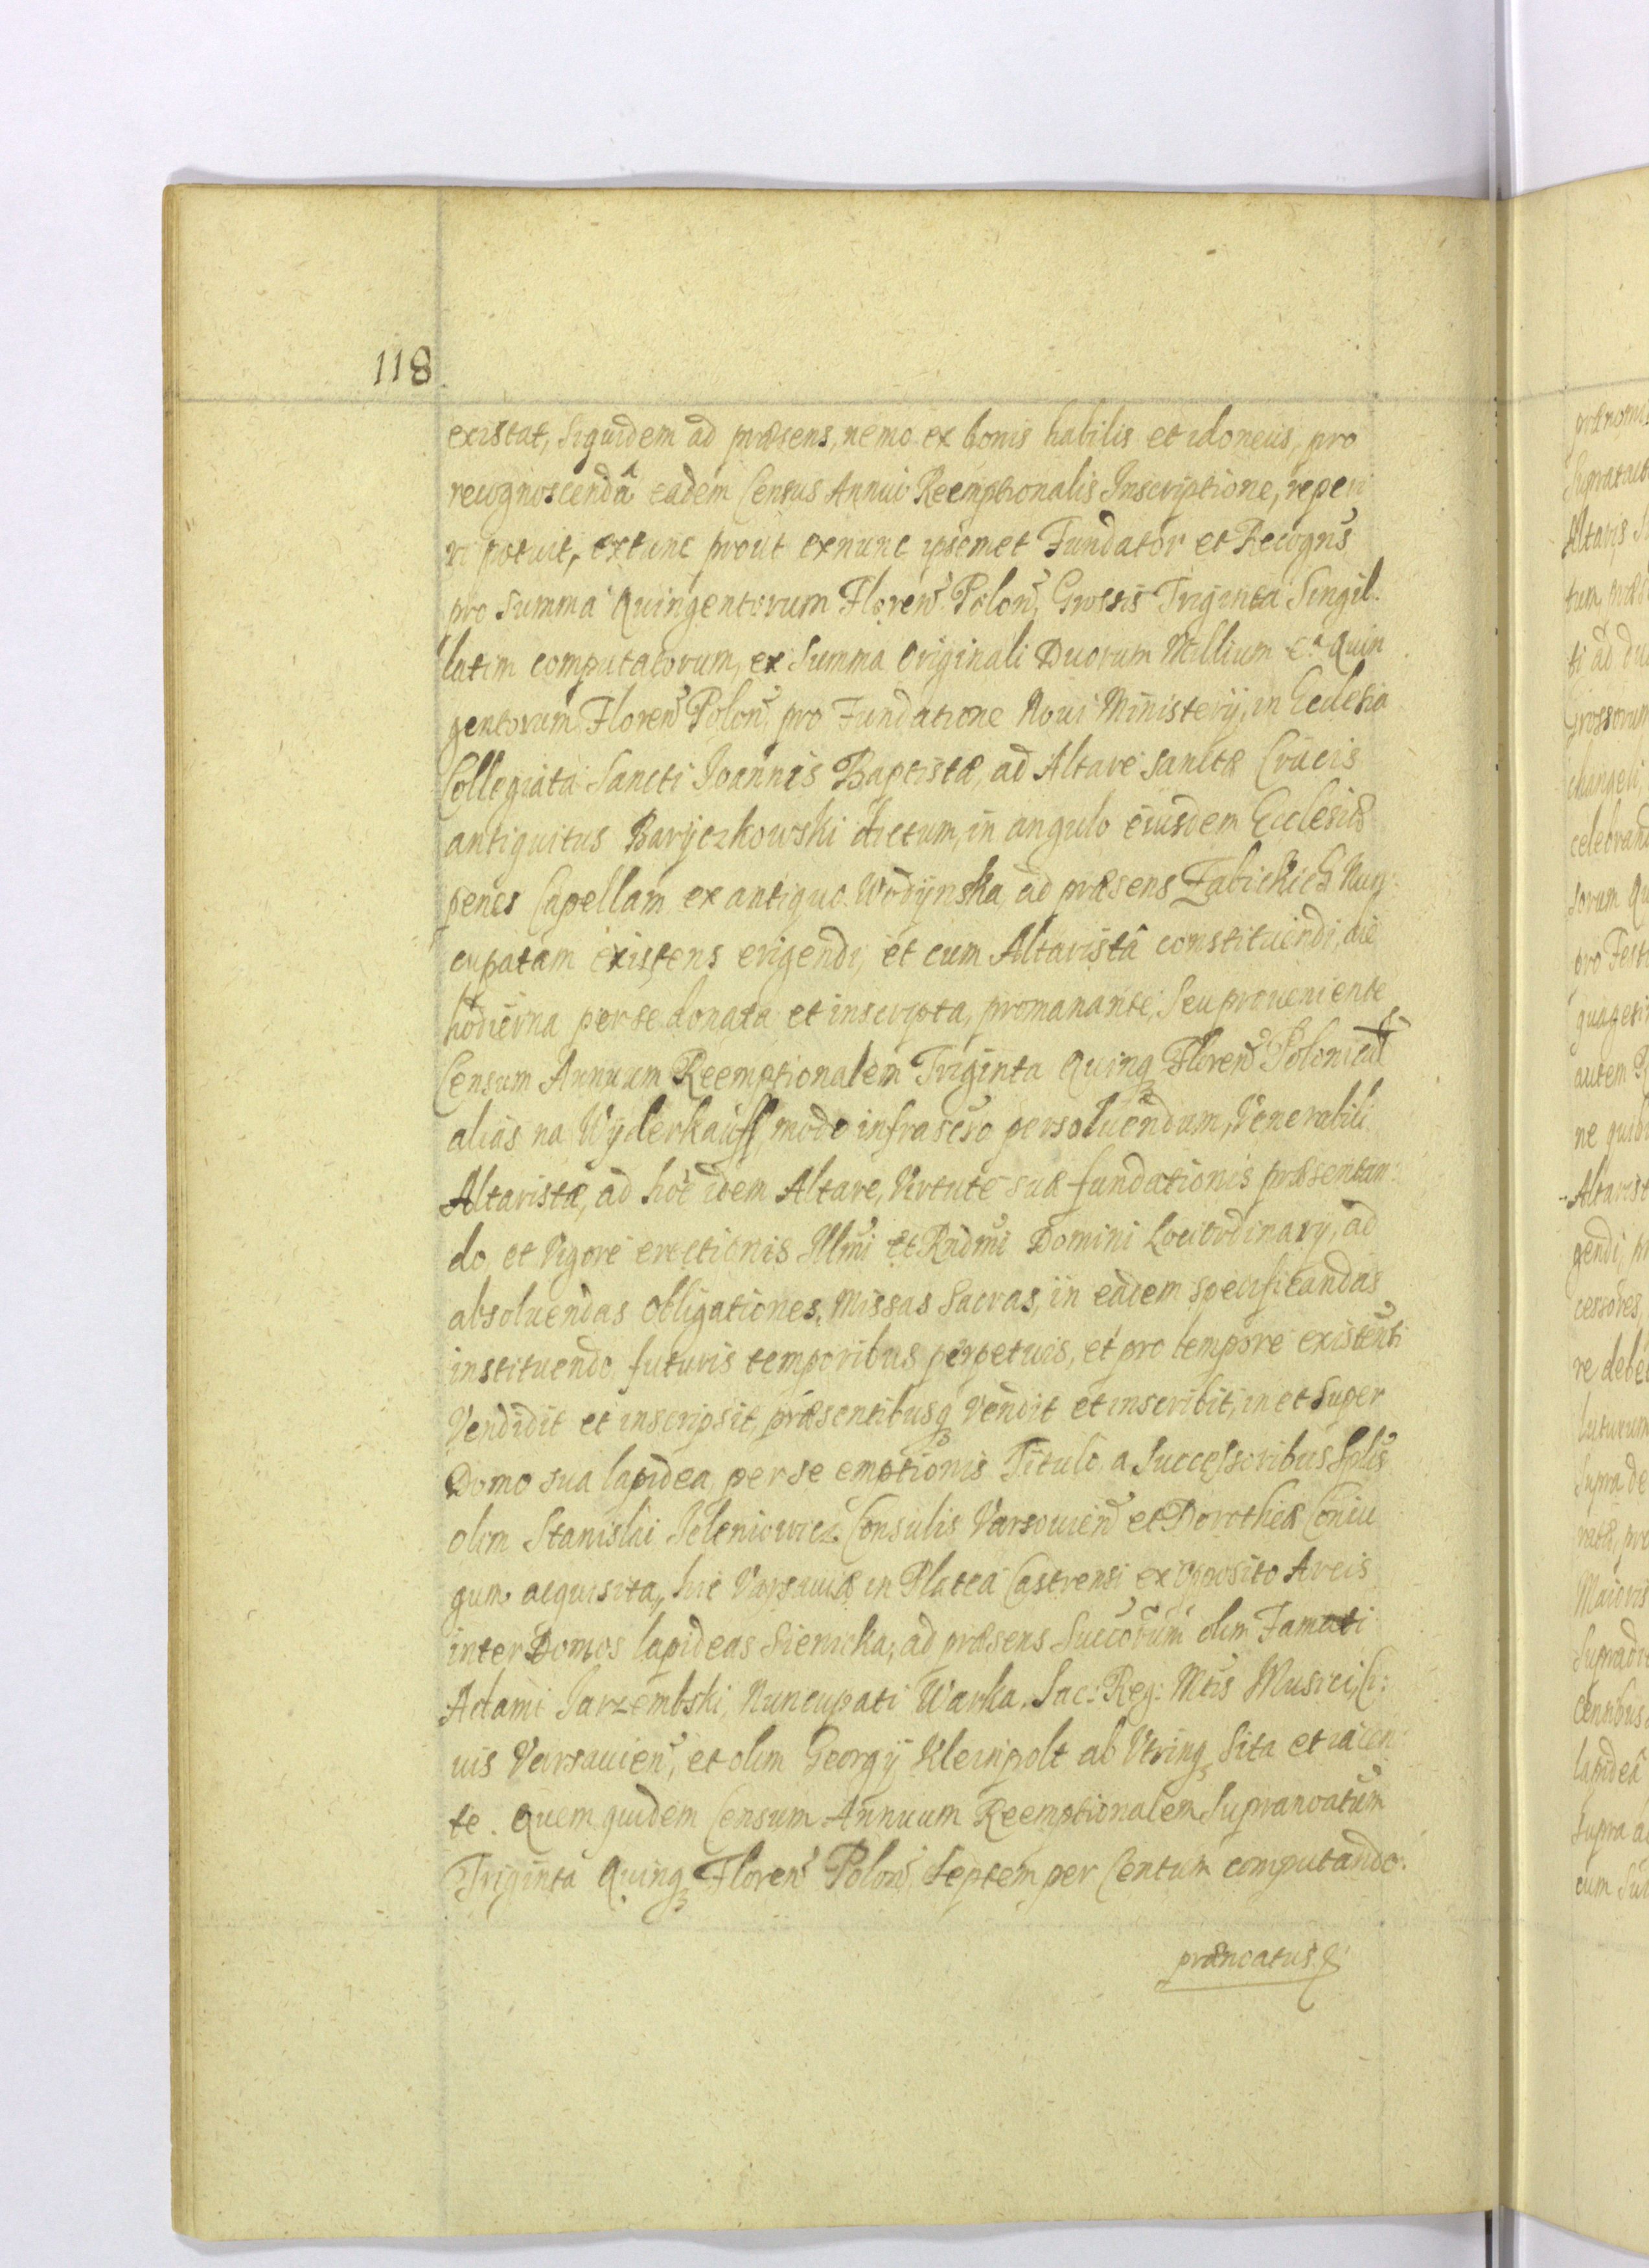 118
existat, Siquidem ad præsens, nemo ex bonis habilis et idoneus, pro
recognoscendâ eadem Census Annui Reemptionalis Inscriptione, reperi
ri potuit, extunc prout exnunc ipsemet Fundator et Recogns
pro Summa Quingentorum Floren Polon, Grossis Triginta Singil
latim computatorum, ex Summa Originali Duorum Millium et Quin
gentorum Floren Polon, pro Fundatione Noui Ministerij, in Ecclesia
Collegiata Sancti Joannis Baptistæ, ad Altare Sanctæ Crucis
antiquitus Baryczkowski dictum, in angulo eiusdem Ecclesiæ
penes Capellam ex antiquo Wodynska, ad præsens Nun
cupatam existens erigendi, et cum Altaristâ constituendi, die
hodierna per se donata et inscripta, promanante, Seu proueniente
Censum Annuum Reemptionalem Triginta Quinq Floren
alias na Wyderkauff, modo infrascro persoluendum, Venerabili
Altaristæ, ad hoc idem Altare, Virtute suæ fundationis præsentan
do, et Vigore erectionis Illmi et Rndmi Domini Loci Ordinarij, ad
absoluendas Obligationes, Missas Sacras, in eadem specificandas
instituendo, futuris temporibus perpetuis, et pro tempore existenti
Vendidit et inscripsit, præsentibusq Vendit et inscribit, in et Super
Domo sua lapidea, per se emptionis Titulo, a Successoribus
olim Stanislai Jeleniowicz Consulis Varsouien et Dorotheæ Coniu
gum acquisita, hic Varsauiæ in Platea Castrensi ex opposito Arcis
inter Domos lapideas Sienicka, ad præsens Succorum olim Famati
Adami Jarzembski, Nuncupati Warka, Sac: Reg: Mtis Musici, Ci:
uis Varsauien, et olim Georgij Kleinpolt ab Utrinq Sita et iacen
te. Quem quidem Censum Annuum Reemptionalem Supranoatum
Triginta Quinq Floren Polon, Septem per Centum computando.
prænoatus